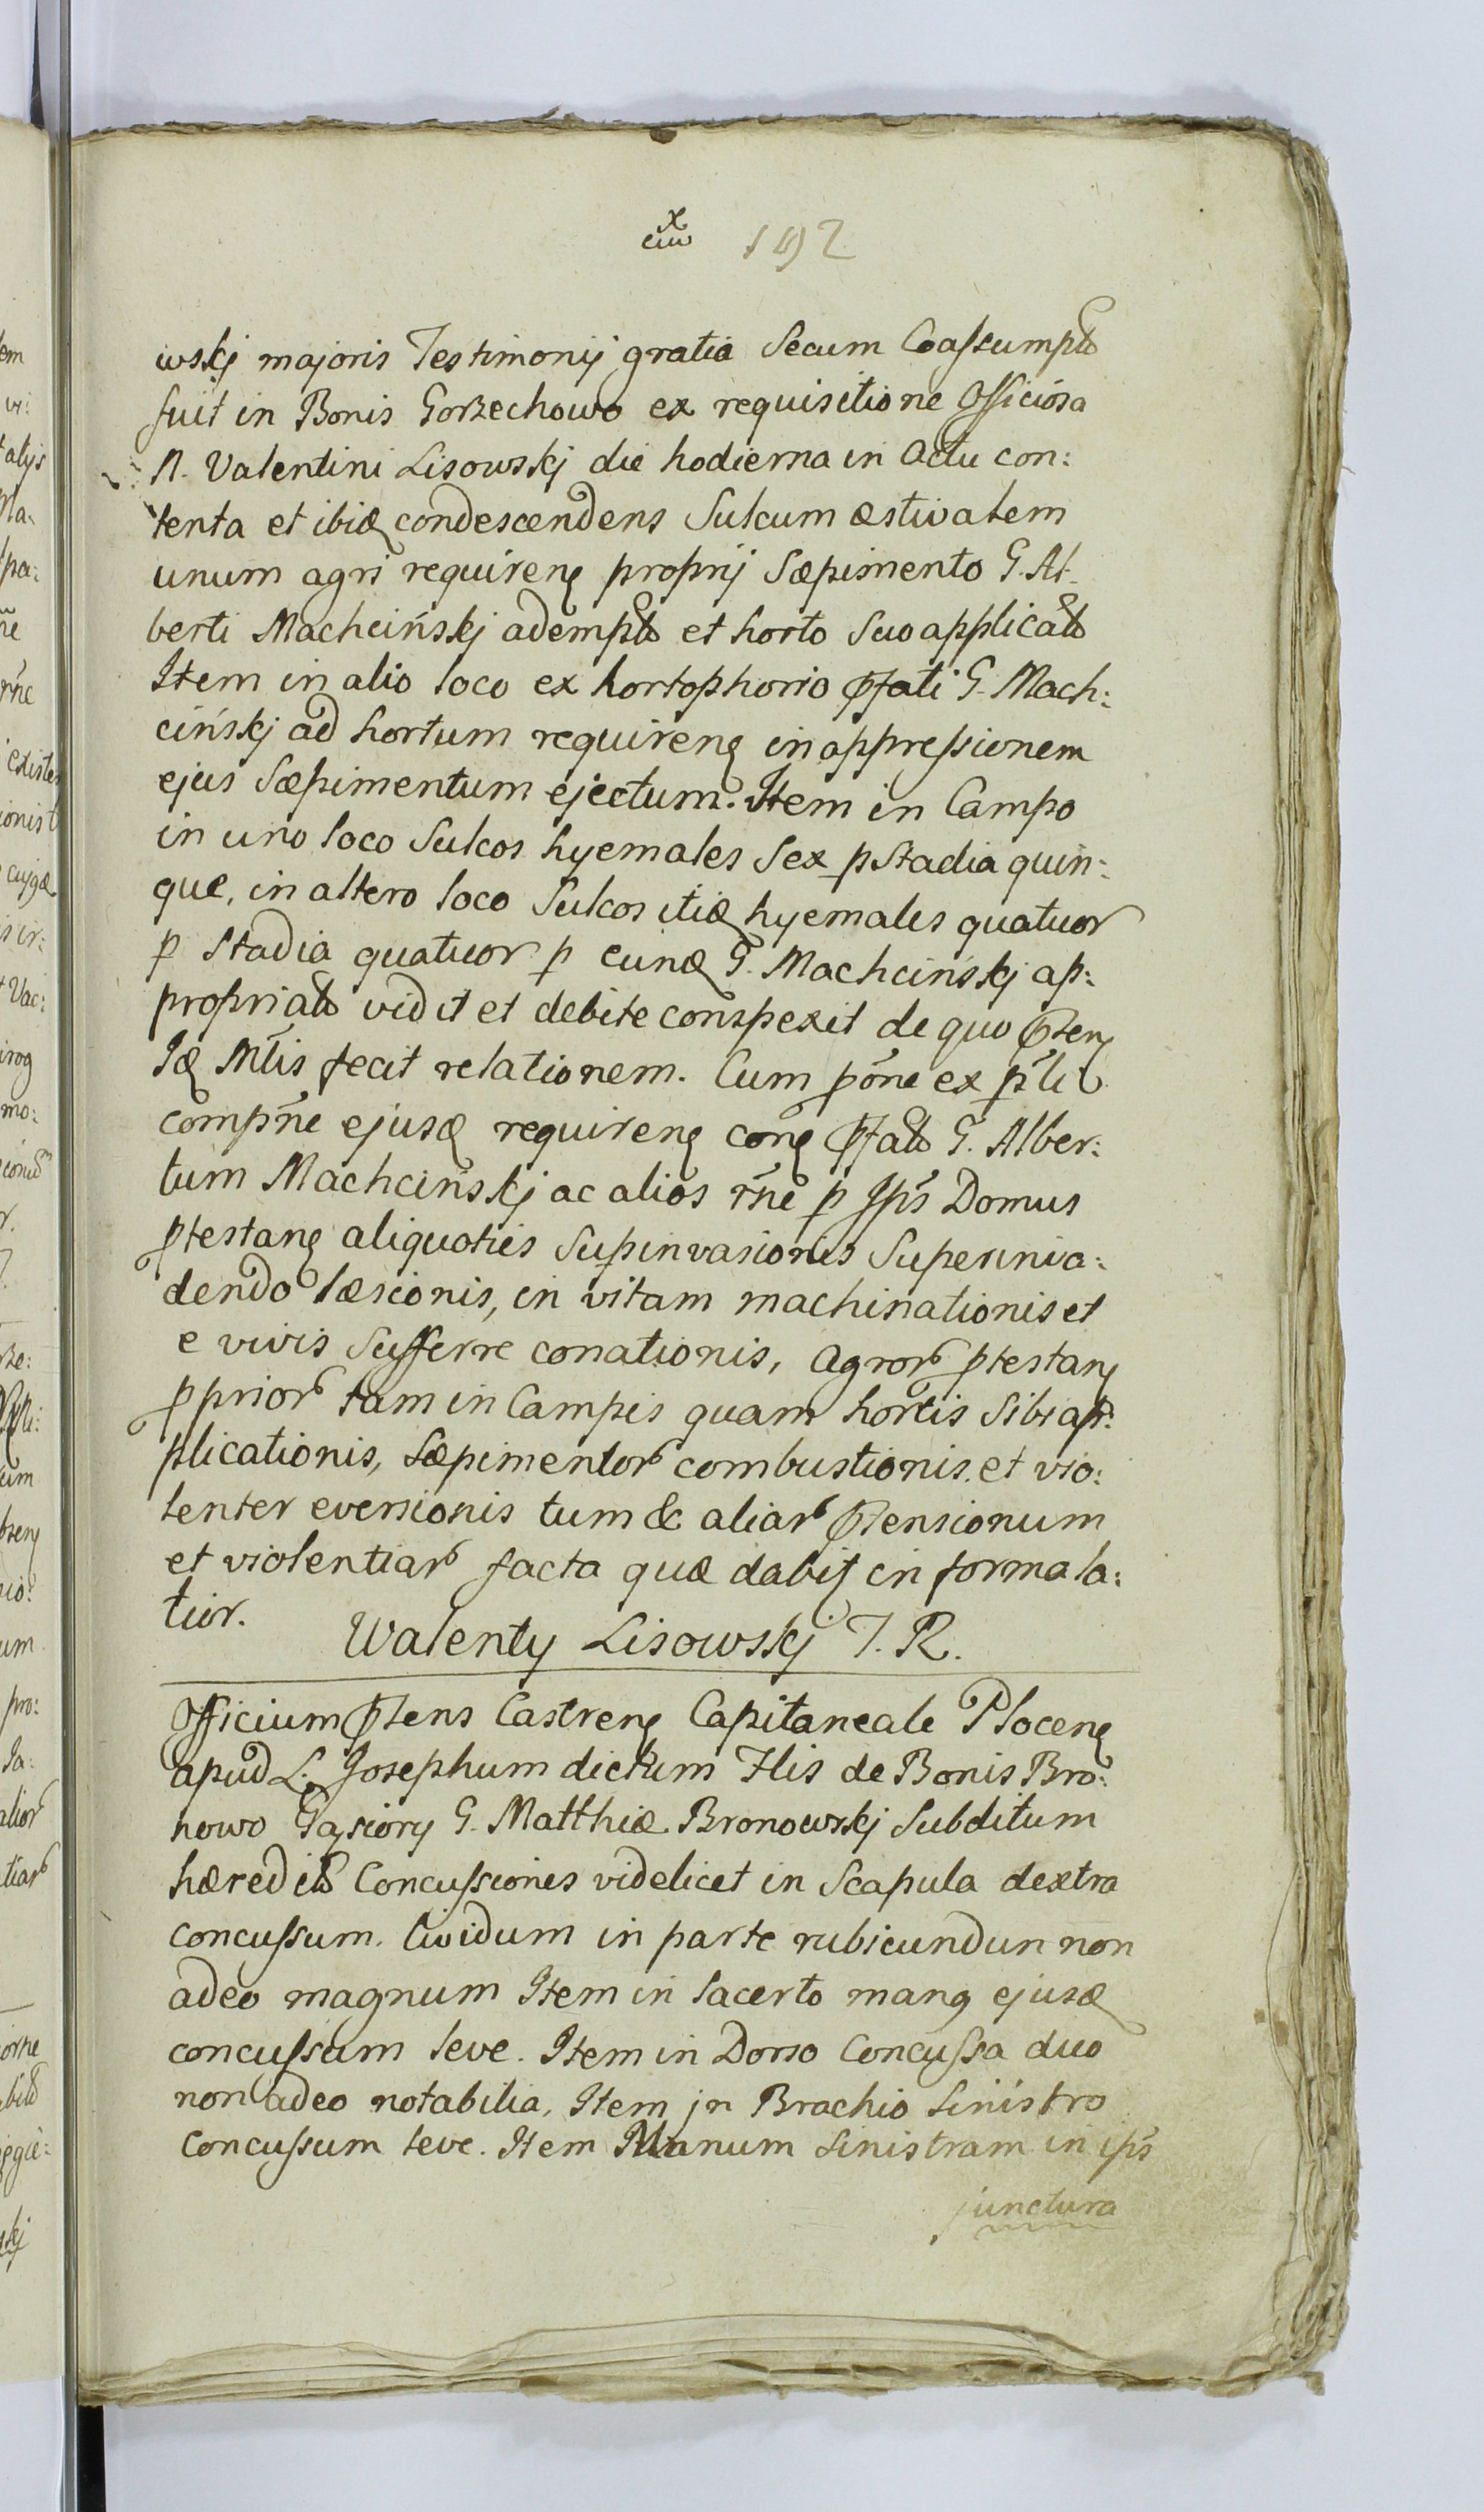 192
wskj majoris Testimonij gratia Secum Coassumptô
fuit in Bonis Gorzechowo ex requisitione Officiosa
N. Valentini Lisowskj die hodierna in Actu con:
tenta et ibiq condescendens Sulcum æstivalem
unum agri requirenę proprij Sæpimento G. Al-
berti Machcińskj ademptô et horto Suo applicatô
Item in alio loco ex hortophorio pfati G. Mach:
cińskj ad hortum requirenę in oppressionem
ejus Sæpimentum ejectum. Item in Campo
in uno loco Sulcos hyemales Sex p Stadia quin:
que, in altero loco Sulcos itiq hyemales quatuor
p Stadia quatuor p eunq G. Machcińskj ap:
propriatô vidit et debite conspexit de quo ptenę
Iq Mtis fecit relationem. Cum pone ex pli
compne ejusq requirenę conę pfatô G. Alber:
tum Machcińskj ac alios rne p Ips Domus
ptestanę aliquoties Supinvasionis Superinva:
dendo læsionis, in vitam machinationis et
e vivis Sufferre conationis, Agror ptestanę
pprior tam in Campis quam hortis Sibi ap:
plicationis, Sæpimentor combustionis et vio:
lenter eversionis tum & aliar ptensionum
et violentiar facta quæ dabit in forma la:
tior.
Walenty Lisowskj J. R.
Officium ptens Castrenę Capitaneale Plocenę
apud L. Josephum dictum Ilis de Bonis Bro:
nowo Gąsiory G. Matthiæ Bronowskj Subditum
hæreditô Concussiones videlicet in Scapula dextra
concussum lividum in parte rubicundun non
adeo magnum Item in lacerto manę ejusq
concussum leve. Item in Dorso Concussa duo
non adeo notabilia, Item in Brachio Sinistro
Concussum leve. Item Manum Sinistram in ips
junctura